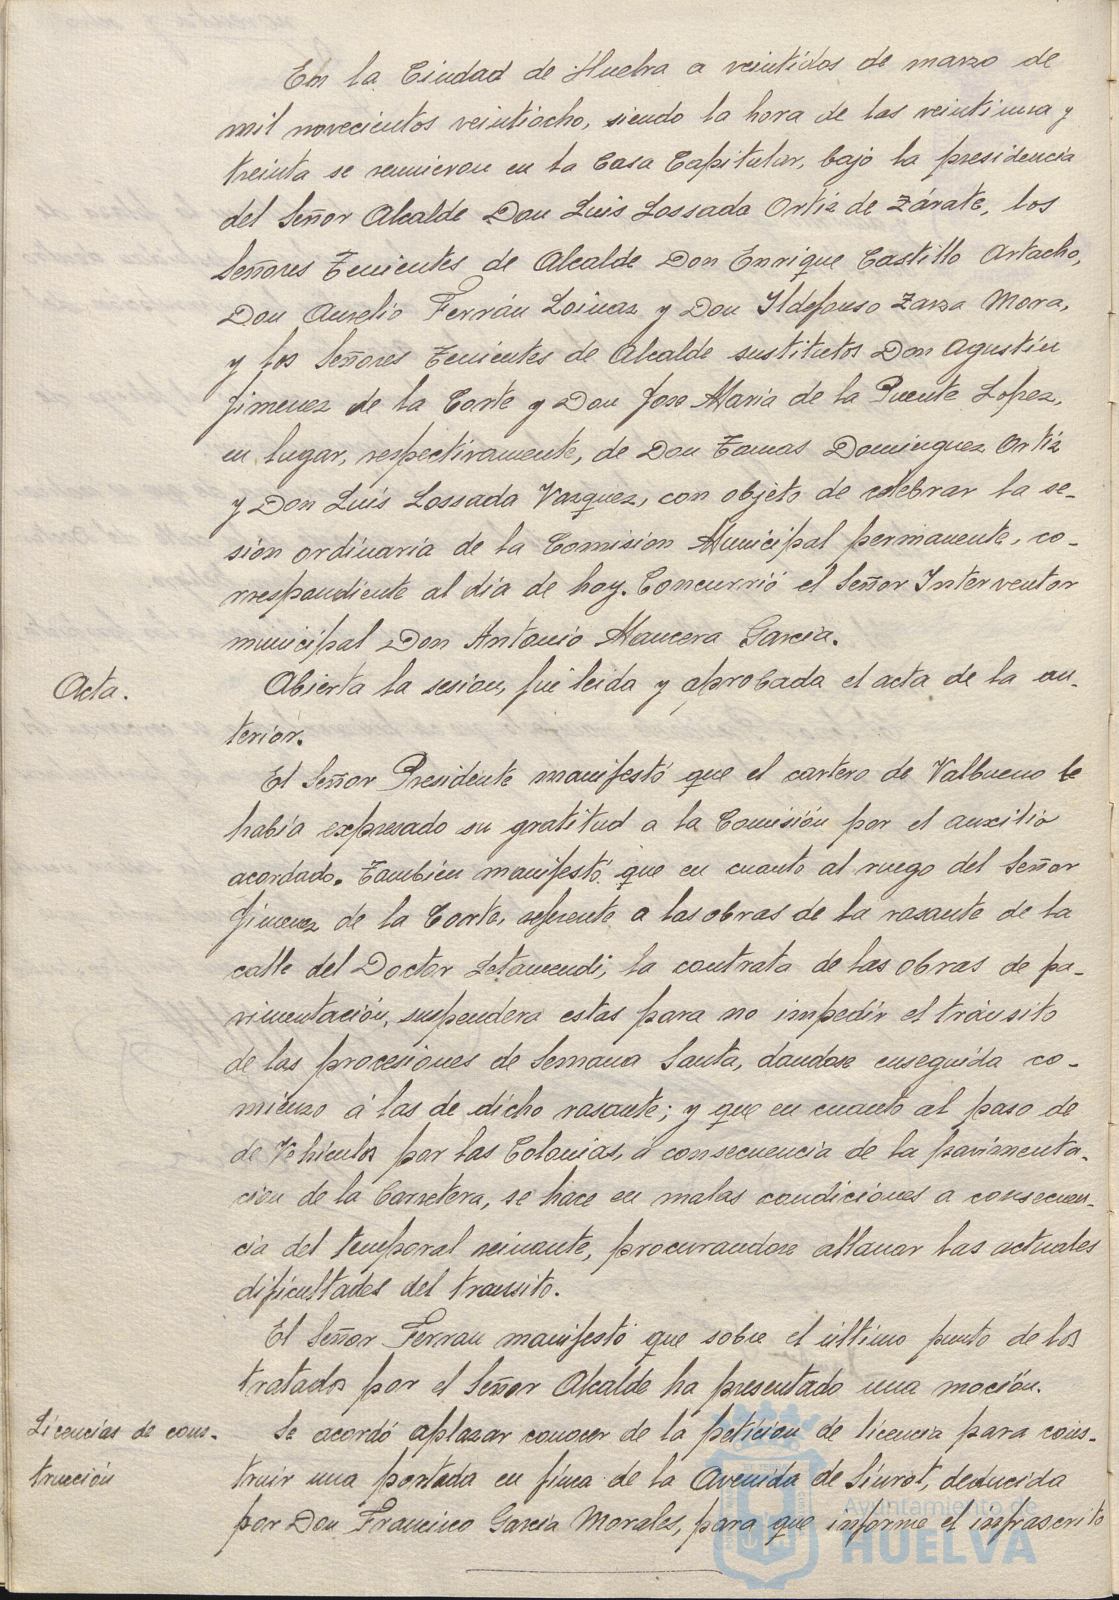 En la Ciudad de Huelva a veintidos de marzo de
mil novecientos veintiocho, siendo la hora de las veintiuna y
treinta se reunieron en la Casa Capitular, bajo la presidencia
del Señor Alcalde Don Luis Lossada Ortiz de Zárate, los
Señores Tenientes de Alcalde Don Enrique Castillo Artacho,
Don Aurelio Ferrán Loinaz y Don Ildefonso Zarza Mora,
y los Señores Tenientes de Alcalde sustitutos Don Agustin
Jimenez de la Corte y Don Jose Maria de la Puente Lopez,
en lugar, respectivamente, de Don Tomas Dominguez Ortiz
y Don Luis Lossada Vazquez, con objeto de celebrar la se-
sion ordinaria de la Comision Municipal permanente, co-
rrespondiente al dia de hoy. Concurrió el Señor Interventor
municipal Don Antonio Mancera Garcia.
Acta.
Abierta la sesion, fué leida y aprobada el acta de la an-
terior.
El Señor Presidente manifestó que el cartero de Valbueno le
habia expresado su gratitud a la Comisión por el auxilio
acordado. Tambien manifestó que en cuanto al ruego del Señor
Jimenez de la Corte, referente a las obras de la rasante de la
calle del Doctor Letamendi, la contrata de las obras de pa-
vimentación, suspendera estas para no impedir el tránsito
de las procesiones de Semana Santa, dandose enseguida co-
mienzo á las de dicho rasante; y que en cuanto al paso de
de Vehiculos por las Colonias, a consecuencia de la pavimenta-
cion de la Carretera, se hace en malas condiciones a consecuen-
cia del temporal reinante, procurandose allanar las actuales
dificultades del transito.
El Señor Ferran manifestó que sobre el último punto de los
tratados por el Señor Alcalde ha presentado una moción.
Licencias de cons-
trucción
Se acordó aplazar conocer de la peticion de licencia para cons-
truir una portada en finca de la Avenida de Siurot, deducida
por Don Francisco Garcia Morales, para que informe el infrascrito
Ayuntamiento de
HUELVA